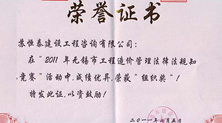 荣誉证书
苏恒泰建设工程咨询有限公司:
在“2011年无锡市工程造价管理法律法规知
识竞赛”活动中,成绩优异,荣获“组织奖”!
特发此证,以资鼓励!
二〇一一年